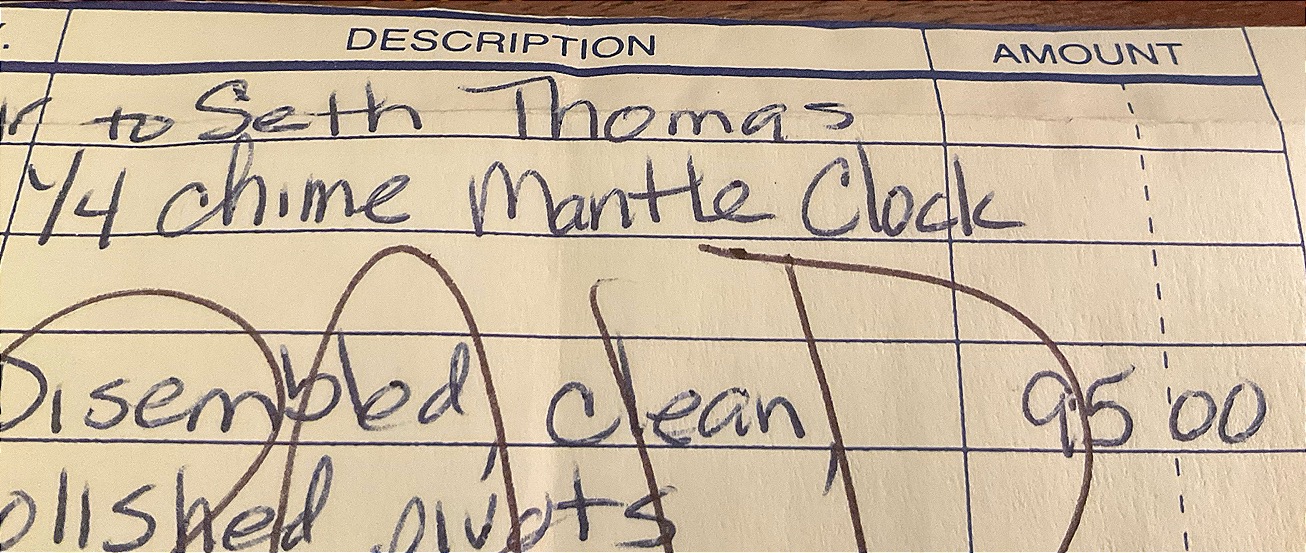 DESCRIPTION AMOUNT
to Seth Thomas
1/4 chime Mantle Clock
Disembled clean, 95 00
olished pivots
PAID